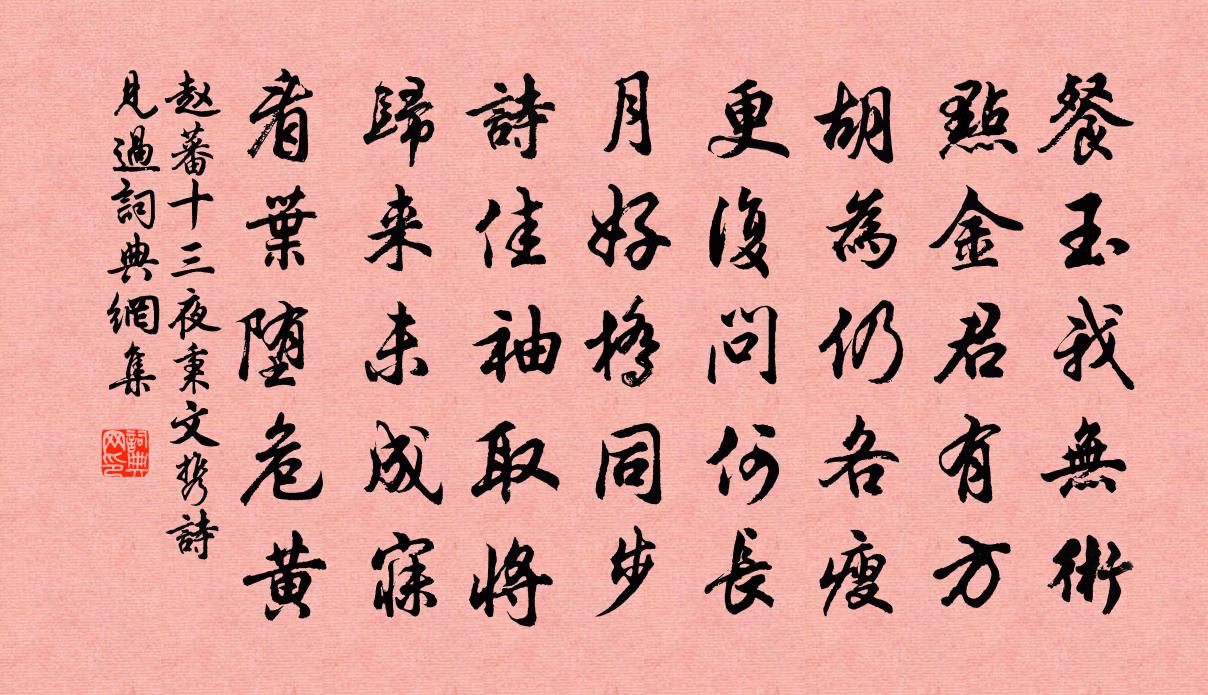 餐玉我無術
點金君有方
胡為仍各瘦
更復問何長
月好橋同步
詩佳袖取將
歸来未成寐
看葉堕危黄
赵蕃十三夜秉文携詩
見過詞典網集
詞典网印